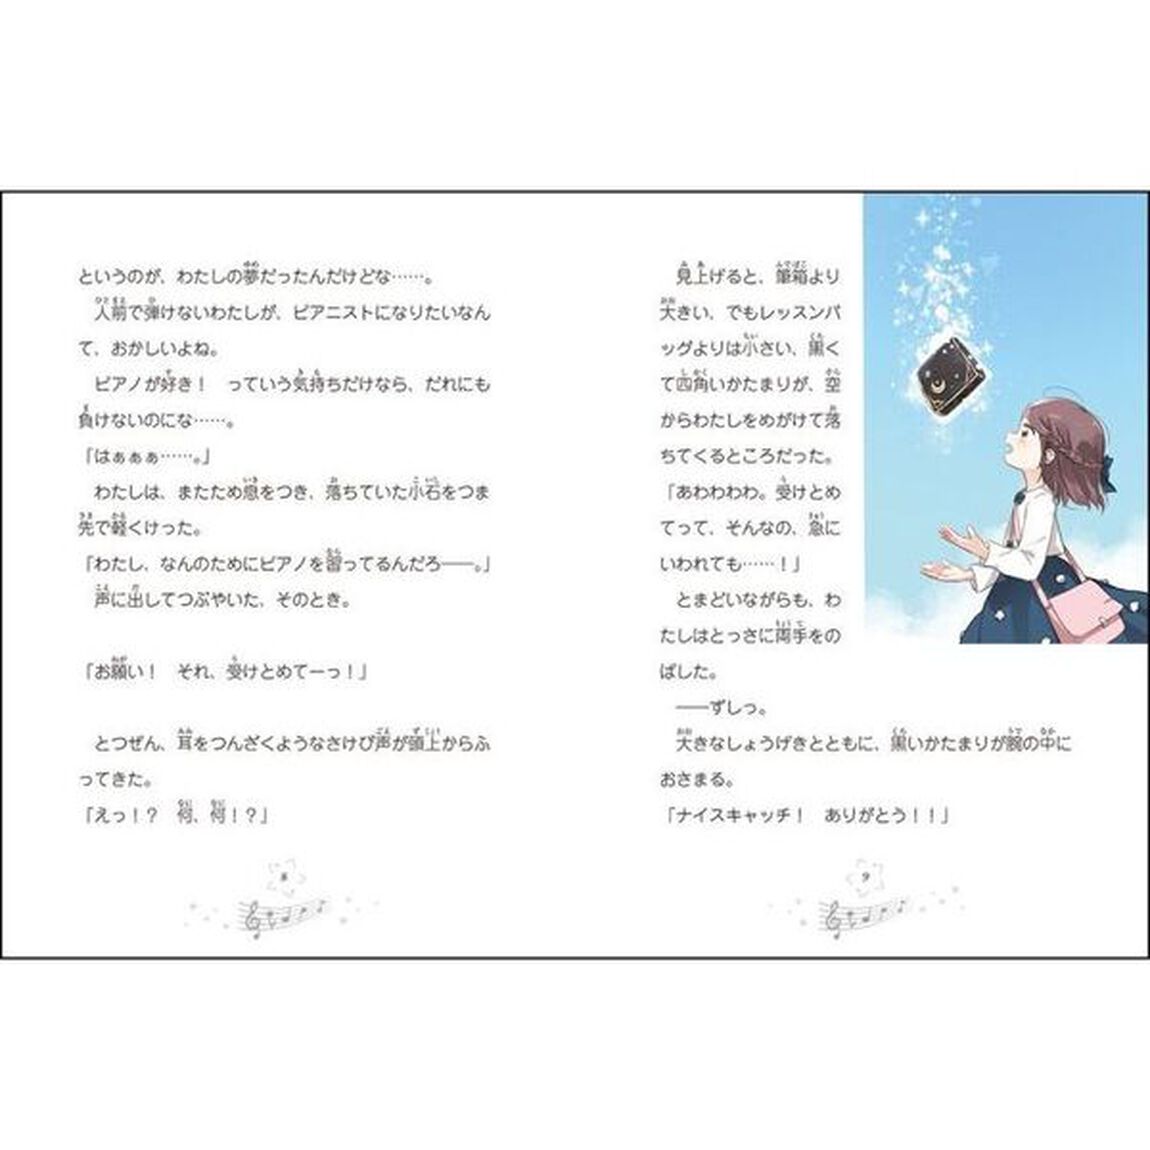 というのが、わたしの夢だったんだけどな……。
人前で弾けないわたしが、ピアニストになりたいなん
て、おかしいよね。
ピアノが好き！　っていう気持ちだけなら、だれにも
負けないのにな……。
「はぁぁぁ……。」
わたしは、またため息をつき、落ちていた小石をつま
先で軽くけった。
「わたし、なんのためにピアノを習ってるんだろ――。」
声に出してつぶやいた、そのとき。
「お願い！　それ、受けとめてーっ！」
とつぜん、耳をつんざくようなさけび声が頭上からふ
ってきた。
「えっ！？　何、何！？」
8
見上げると、筆箱より
大きい、でもレッスンバ
ッグよりは小さい、黒く
て四角いかたまりが、空
からわたしをめがけて落
ちてくるところだった。
「あわわわわ。受けとめ
てって、そんなの、急に
いわれても……！」
とまどいながらも、わ
たしはとっさに両手をの
ばした。
――ずしっ。
大きなしょうげきとともに、黒いかたまりが腕の中に
おさまる。
「ナイスキャッチ！　ありがとう！！」
9